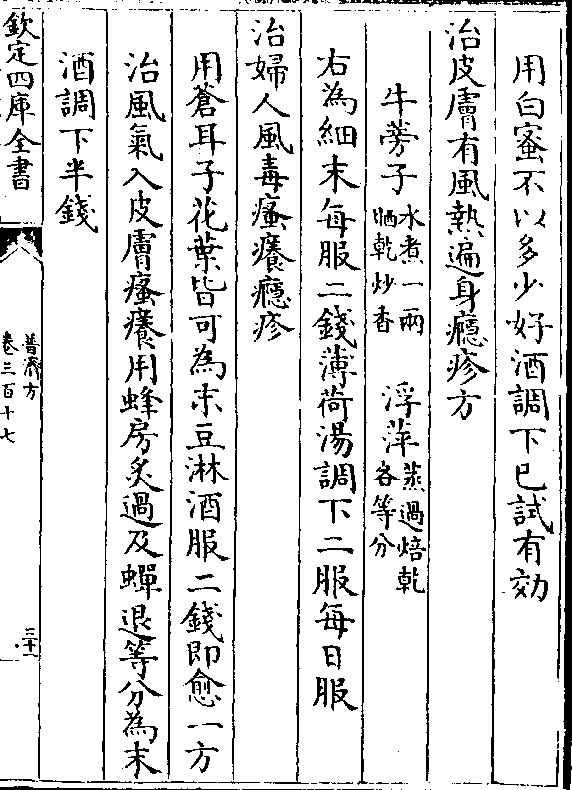 用白蜜不以多少好酒調下已試有効
治皮膚有風熱遍身癮疹方
牛蒡子水煮一兩晒乾炒香 浮萍蒸過焙乾各等分
右為細末每服二錢薄荷湯調下二服每日服
治婦人風毒瘙癢癮疹
用蒼耳子花葉皆可為末豆淋酒服二錢即愈一方
治風氣入皮膚瘙癢用蜂房炙過及蟬退等分為末
酒調下半錢
欽定四庫全書
普濟方
卷三百十七
三十一